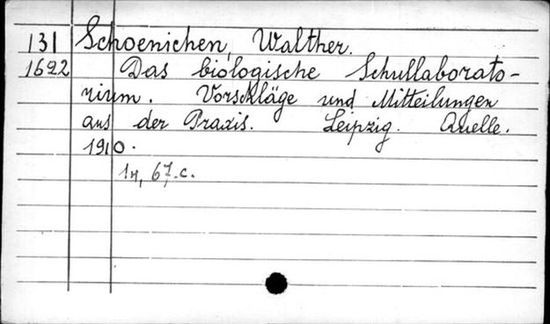 131 Schoenichen, Walther.
1692 Das biologische Schullaborato-
rium. Vorschläge und Mitteilungen
aus der Praxis. Leipzig. Quelle.
1910.
67. c.